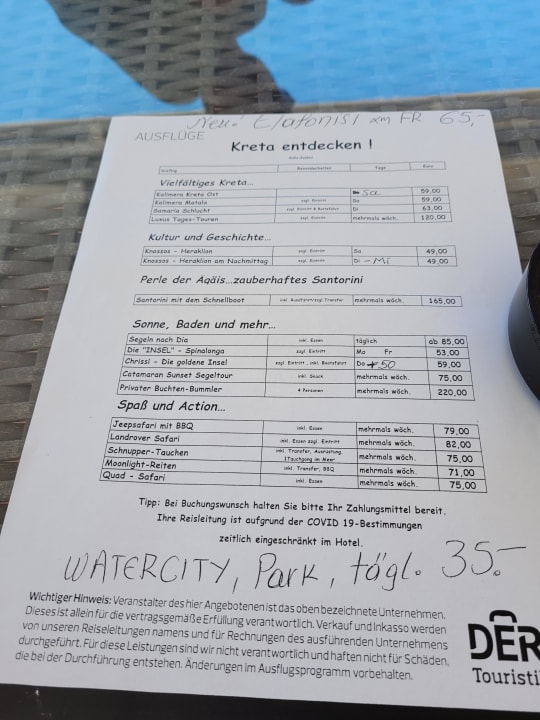 Neu! Elafonisi am FR 65,-
AUSFLÜGE
Kreta entdecken !
Besonderheiten tage Euro
Vielfältiges Kreta...
Kalimera Kreta Ost Sa 59,00
Kalimera Matala zzgl. Eintritt So 59,00
Samaria Schlucht zzgl. Eintritt & Bootsfahrt Di 63,00
Luxus Tages-Touren mehrmals wöch. 120,00
Kultur und Geschichte...
Knossos - Heraklion zzgl. Eintritt Sa 49,00
Knossos - Heraklion am Nachmittag zzgl. Eintritt Di - Mi 49,00
Perle der Agäis...zauberhaftes Santorini
Santorini mit dem Schnellboot inkl. Rundfahrt/zzgl. Transfer mehrmals wöch. 165,00
Sonne, Baden und mehr...
Segeln nach Dia inkl. Essen täglich ab 85,00
Die "INSEL" - Spinalonga zzgl. Eintritt Mo Fr 53,00
Chrissi - Die goldene Insel zzgl. Eintritt , inkl. Bootsfahrt Do + SO 59,00
Catamaran Sunset Segeltour inkl. Snack mehrmals wöch. 75,00
Privater Buchten-Bummler 4 Personen mehrmals wöch. 220,00
Spaß und Action...
Jeepsafari mit BBQ inkl. Essen mehrmals wöch. 79,00
Landrover Safari inkl. Essen zzgl. Eintritt mehrmals wöch. 82,00
Schnupper-Tauchen inkl. Transfer, Ausrüstung, 1Tauchgang im Meer mehrmals wöch. 75,00
Moonlight-Reiten inkl. Transfer, BBQ mehrmals wöch. 71,00
Quad - Safari inkl. Essen mehrmals wöch. 75,00
Tipp: Bei Buchungswunsch halten Sie bitte Ihr Zahlungsmittel bereit.
Ihre Reisleitung ist aufgrund der COVID 19-Bestimmungen
zeitlich eingeschränkt im Hotel.
WATERCITY, Park, tägl. 35.-
Wichtiger Hinweis: Veranstalter des hier Angebotenen ist das oben bezeichnete Unternehmen.
Dieses ist allein für die vertragsgemäße Erfüllung verantwortlich. Verkauf und Inkasso werden
von unseren Reiseleitungen namens und für Rechnungen des ausführenden Unternehmens
durchgeführt. Für diese Leistungen sind wir nicht verantwortlich und haften nicht für Schäden,
die bei der Durchführung entstehen. Änderungen im Ausflugsprogramm vorbehalten.
DER
Touristi